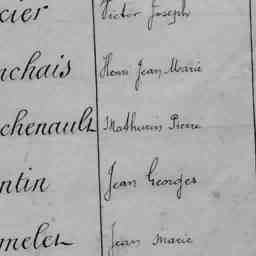 cier Victor Joseph
achais Henri Jean Marie
chenault Mathurin Pierre
ntin Jean Georges
melet Jean Marie